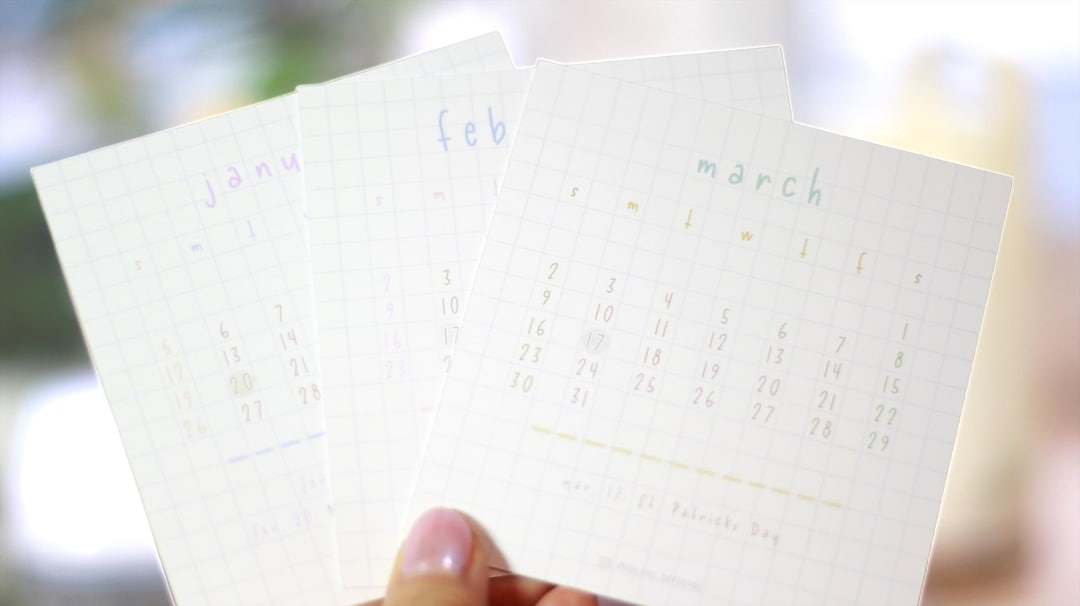 janu
s m t
6 7
12 13 14
19 20 21
26 27 28
Jan
Jan 20
feb
s m t
2 3
9 10
16 17
23 2
march
s m t w t f s
1
2 3 4 5 6 7 8
9 10 11 12 13 14 15
16 17 18 19 20 21 22
23 24 25 26 27 28 29
30 31
mar. 17: St. Patricks Day